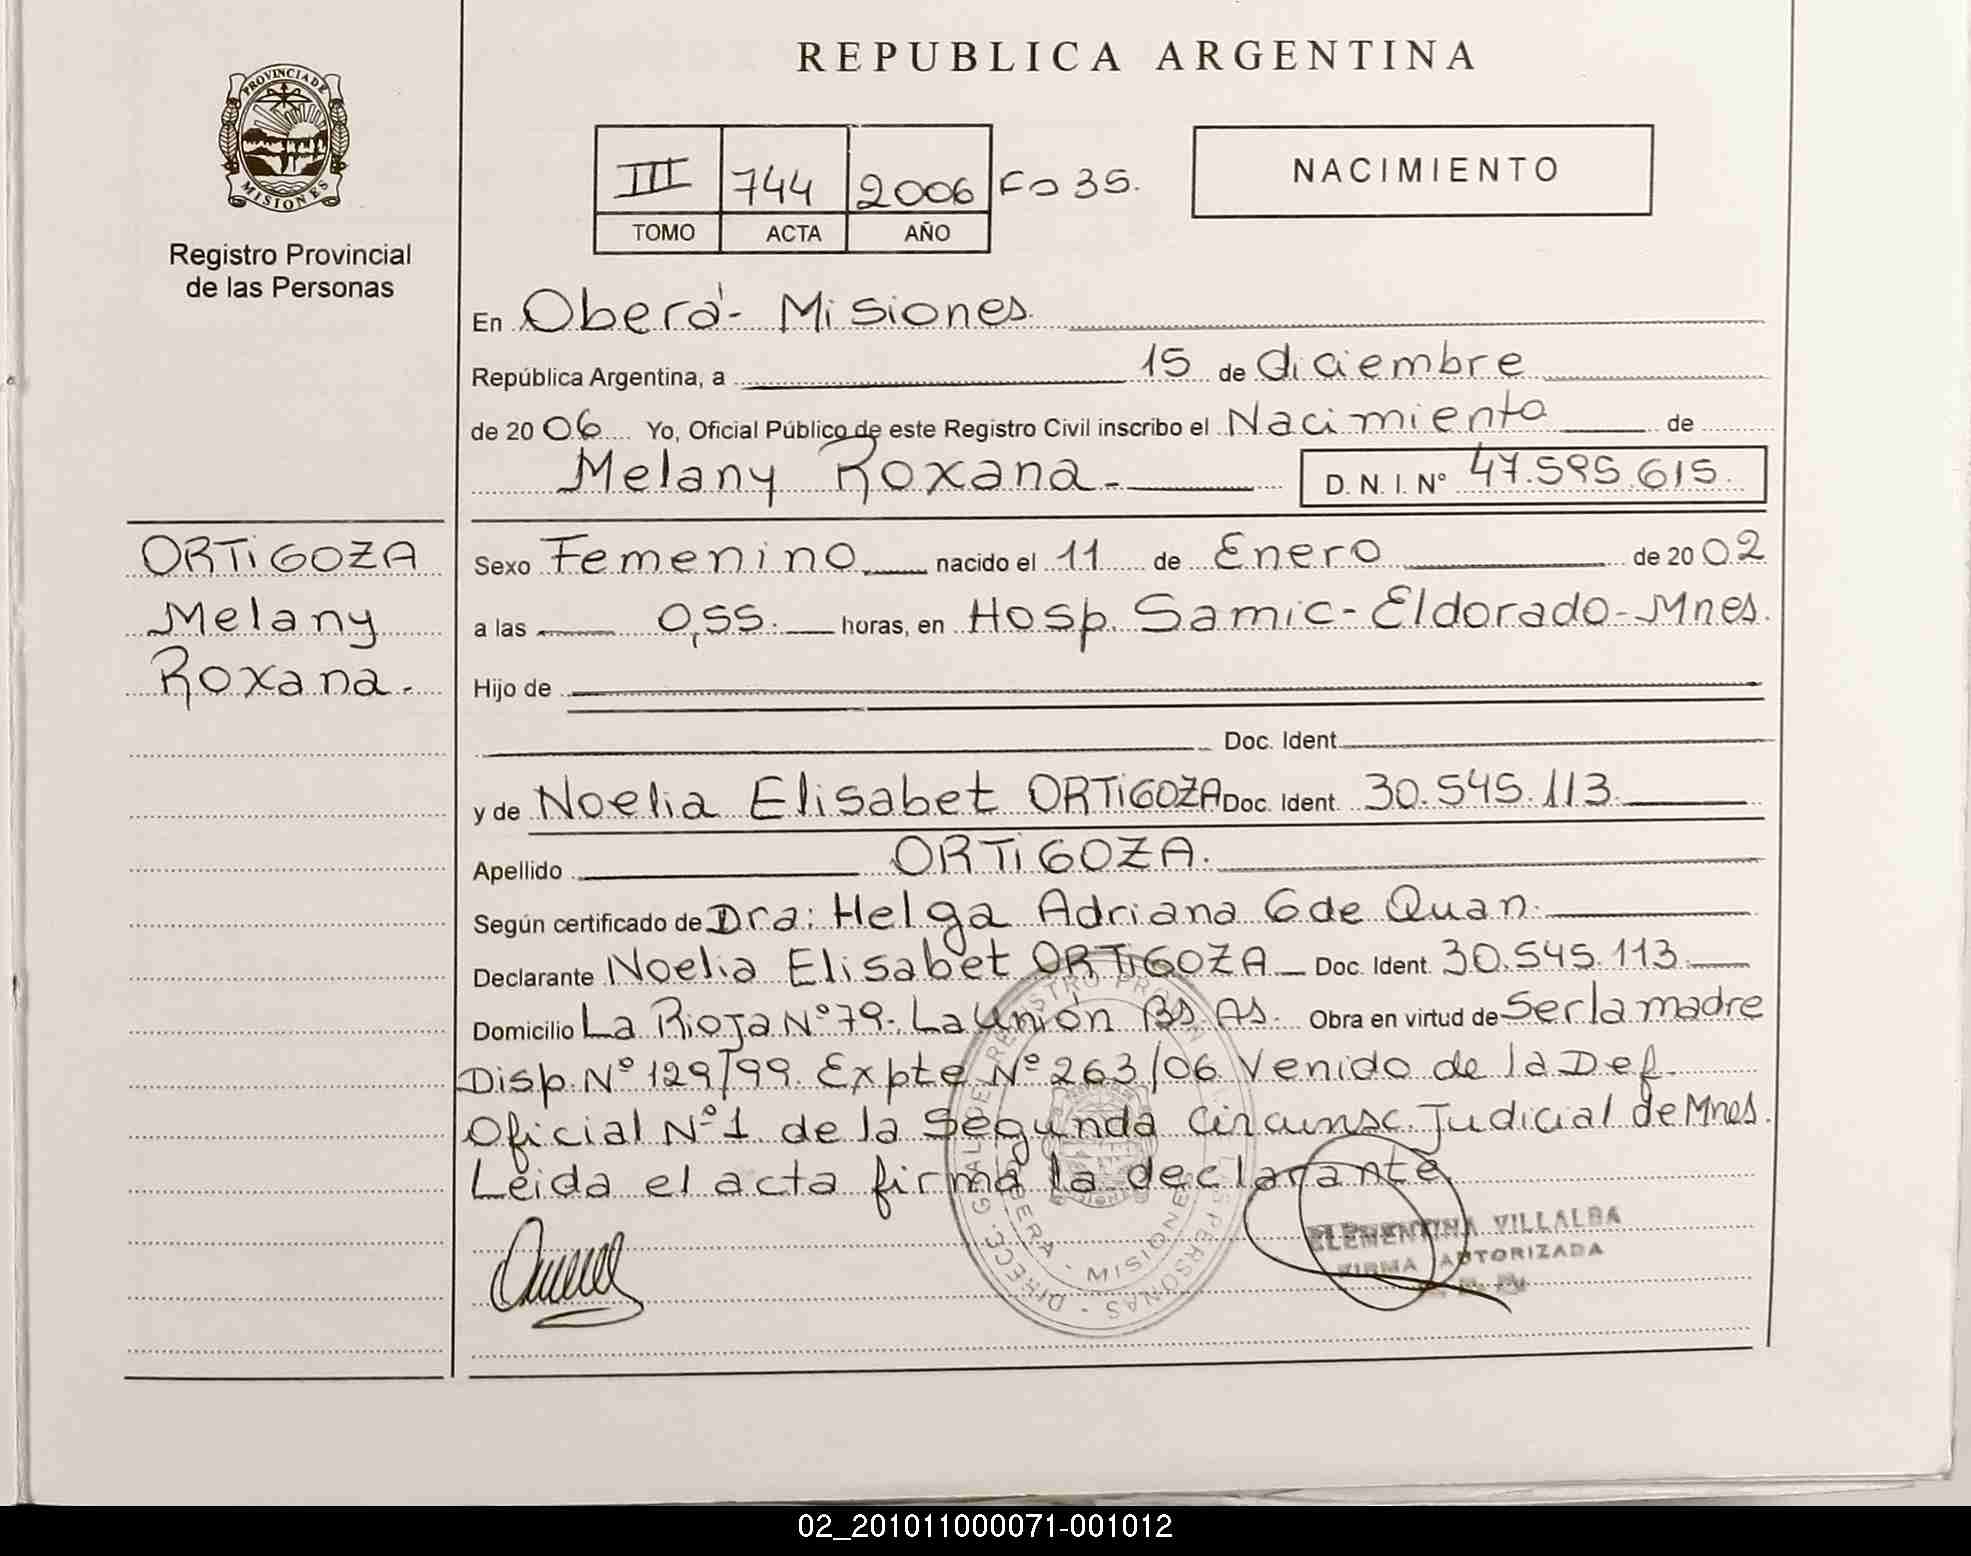 REPUBLICA ARGENTINA
PROVINCIA DE MISIONES
Registro Provincial
de las Personas
III 744 2006 Fo 35.
TOMO ACTA AÑO
NACIMIENTO
En Oberá - Misiones.
República Argentina, a 15 de diciembre
de 2006 Yo, Oficial Público de este Registro Civil inscribo el Nacimiento de
Melany Roxana.- D. N. I. Nº 47.595.615.
ORTiGOZA
Melany
Roxana.-
Sexo Femenino nacido el 11 de Enero de 2002
a las 0,55. horas, en Hosp. Samic - Eldorado - Mnes.
Hijo de
Doc. Ident.
y de Noelia Elisabet ORTiGOZA Doc. Ident. 30.545.113.
Apellido ORTiGOZA.
Según certificado de Dra: Helga Adriana G de Quan.
Declarante Noelia Elisabet ORTiGOZA Doc. Ident. 30.545.113.
Domicilio La Rioja Nº 79. La Unión Bs. As. Obra en virtud de Ser la madre
Disp. Nº 129/99. Expte Nº 263/06 Venido de la Def.
Oficial Nº 1 de la Segunda Circunsc. Judicial de Mnes.
Leida el acta firma la declarante
DIRECC. GRAL DE REGISTRO PROVIN PERSONAS
OBERA - MISIONES
CLEMENTINA VILLALBA
FIRMA AUTORIZADA
02_201011000071-001012